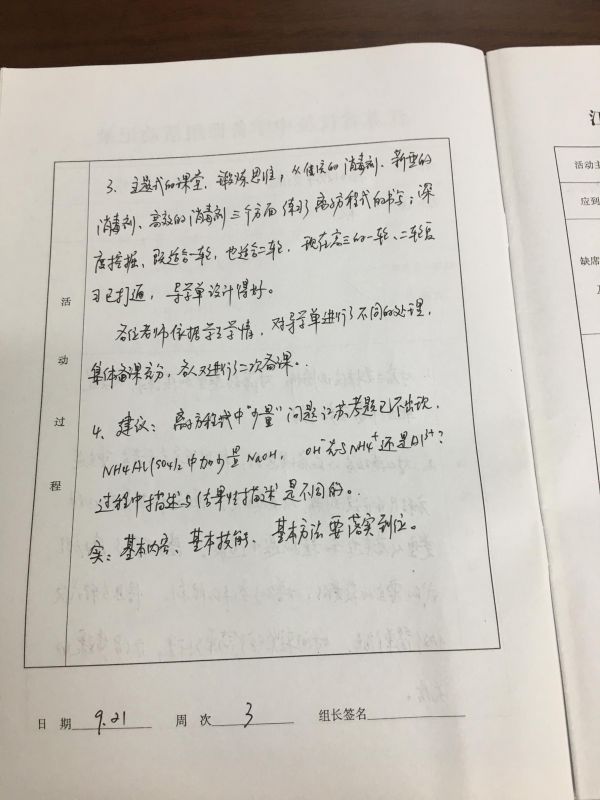 3、主题式的课堂,锻炼思维,从传统的消毒剂、新型的
消毒剂、高效的消毒剂三个方面练习离子方程式的书写;深
度挖掘、既适合一轮,也适合二轮,现在高三的一轮、二轮复
习已打通,导学单设计得好。
各位老师依据学生学情,对导学单进行了不同的处理,
集体备课充分,各人又进行了二次备课。
4、建议:离子方程式中“少量”问题江苏考题已不出现,
NH4Al(SO4)2中加少量NaOH,OH⁻先与NH4⁺还是Al³⁺?
过程中描述与结果性描述是不同的。
实:基本内容、基本技能、基本方法要落实到位。
活动过程
日 期 9.21 周 次 3 组长签名
江
活动主
应到
缺席